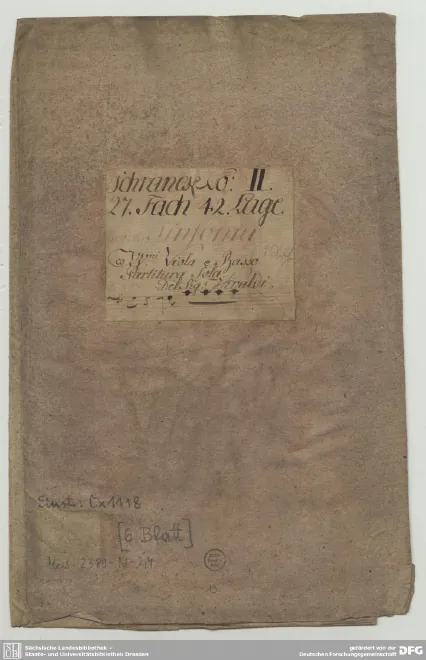 Schranck No: II.
27. Fach 42. Lage.
Sinfonia
Co VVni Viola e Basso
Partitura Sola
Del Sig:
Einst: Cx 1118
[6 Blatt]
Mus. 2389-N-
Sächsische Landesbibliothek -
Staats- und Universitätsbibliothek Dresden
gefördert von der
Deutschen Forschungsgemeinschaft
DFG